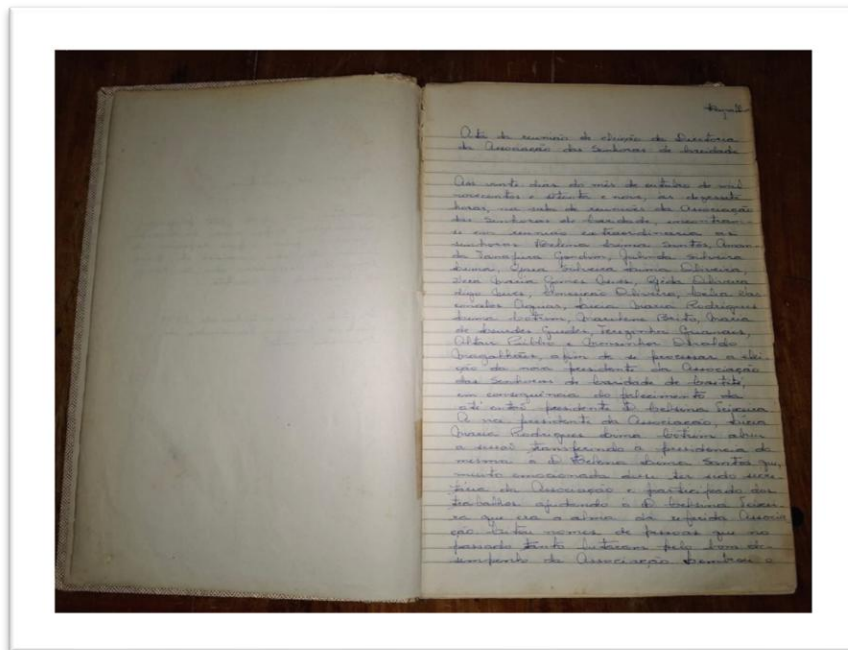 Ata da reunião de eleição da Diretoria
da Associação das Senhoras de Caridade
Aos vinte dias do mês de outubro de mil
novecentos e setenta e nove, às dezessete
horas, na sala de reuniões da Associação
das Senhoras de Caridade, encontram-
se em reunião extraordinária as
senhoras Helena Lima Santos, Aman-
da Gondim, Silveira
Lima, Silveira Lima Oliveira,
Maria Gomes Oliveira
Oliveira,
Lúcia Maria Rodrigues
Lima Cotrim, Brito, Maria
de Lourdes Guedes, Terezinha Guanais,
Altair Públio e Monsenhor Osvaldo
Magalhães, afim de se processar a elei-
ção da nova presidente da Associação
das Senhoras de Caridade de Caetité,
em consequência do falecimento da
até então presidente D. Celsina Teixeira
A vice presidente da Associação, Lúcia
Maria Rodrigues Lima Cotrim abriu
a transferindo a presidência da
mesma a D. Helena Lima Santos que,
muito emocionada disse ter sido secre-
tária da Associação e participado dos
trabalhos ajudando a D. Celsina Teixei-
ra que era a alma da referida Associa
ção. Citou nomes de pessoas que no
passado tanto lutaram pelo bom de-
sempenho da Associação. Lembrou o